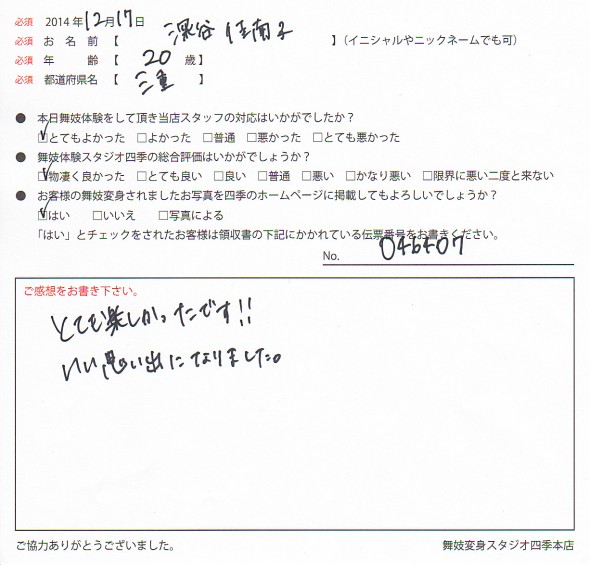 必須 2014年12月17日
必須 お名前【 深谷 佳南子 】(イニシャルやニックネームでも可)
必須 年齢【 20 歳】
必須 都道府県名【 三重 】
● 本日舞妓体験をして頂き当店スタッフの対応はいかがでしたか?
□とてもよかった □よかった □普通 □悪かった □とても悪かった
● 舞妓体験スタジオ四季の総合評価はいかがでしょうか?
□物凄く良かった □とても良い □良い □普通 □悪い □かなり悪い □限界に悪い二度と来ない
● お客様の舞妓変身されましたお写真を四季のホームページに掲載してもよろしいでしょうか?
□はい □いいえ □写真による
「はい」とチェックをされたお客様は領収書の下記にかかれている伝票番号をお書きください。
No. 046407
ご感想をお書き下さい。
とても楽しかったです!!
いい思い出になりました。
ご協力ありがとうございました。 舞妓変身スタジオ四季本店